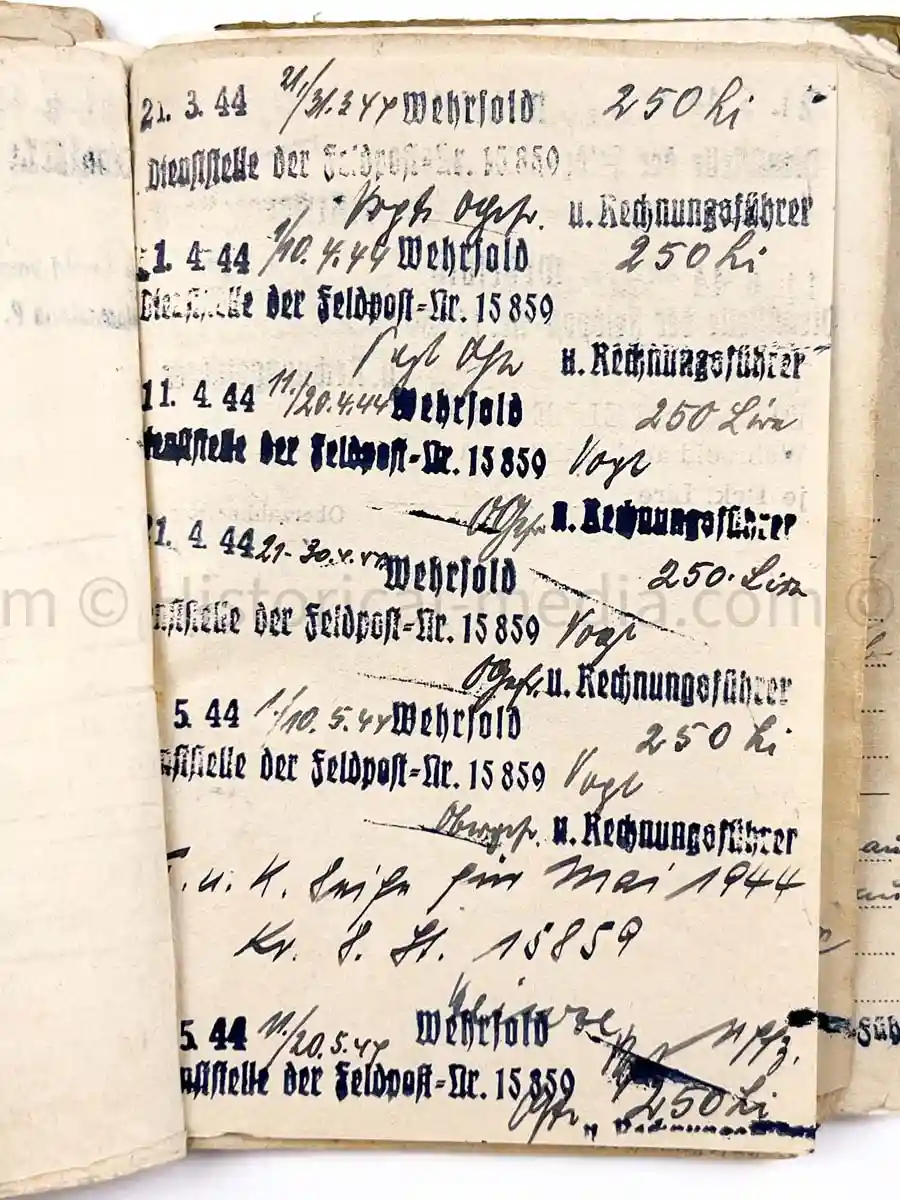 21. 3. 44 21./31.3.44 Wehrsold 250 Li
Dienststelle der Feldpost=Nr. 15859
Vogt Ogefr. u. Rechnungsführer
1. 4. 44 1/10.4.44 Wehrsold 250 Li
Dienststelle der Feldpost=Nr. 15859
Vogt Ogefr u. Rechnungsführer
11. 4. 44 11./20.4.44 Wehrsold 250 Lire
Dienststelle der Feldpost=Nr. 15859 Vogt
OGefr. u. Rechnungsführer
21. 4. 44 21-30.4.44 Wehrsold 250. Lire
nststelle der Feldpost=Nr. 15859 Vogt
OGefr. u. Rechnungsführer
5. 44 1./10.5.44 Wehrsold 250 Li
nststelle der Feldpost=Nr. 15859 Vogt
Obergefr. u. Rechnungsführer
u. K. Seife für Mai 1944
Kr. S. St. 15859
5. 44 11./20.5.44 Wehrsold Uffz.
nststelle der Feldpost=Nr. 15859 Vogt
Ogefr 250 Li
u. Rechnungs
m © Historical-media.com ©
Füh